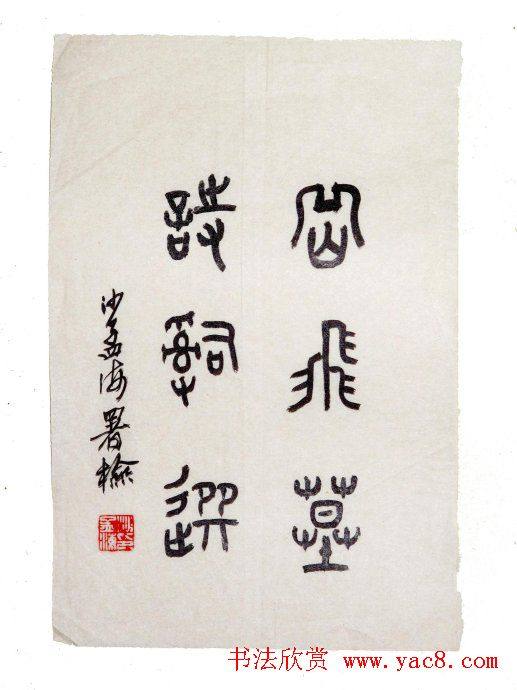 岳飛墓
詩詞選
沙孟海署檢
书法欣赏 www.yac8.com